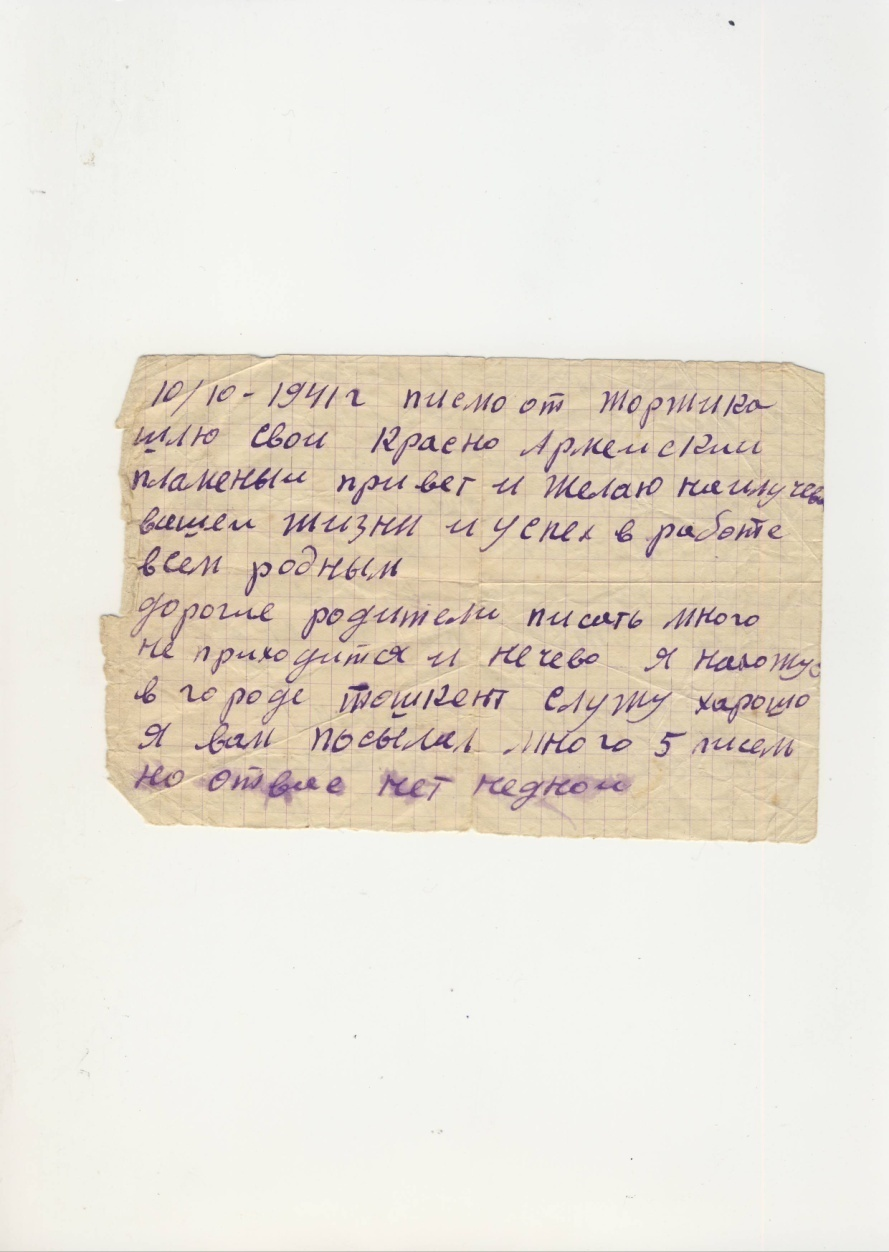 10/10-1941г писмо от Жоржика
шлю свои Красно Армеискии
пламеныи привет и желаю наилучева
вашеи жизни и успех в работе
всем родным
дорогие родители писать много
не приходится и нечево я нахожус
в городе Ташкент служу харошо
Я вам посылал много 5 писем
но отвас нет неднои